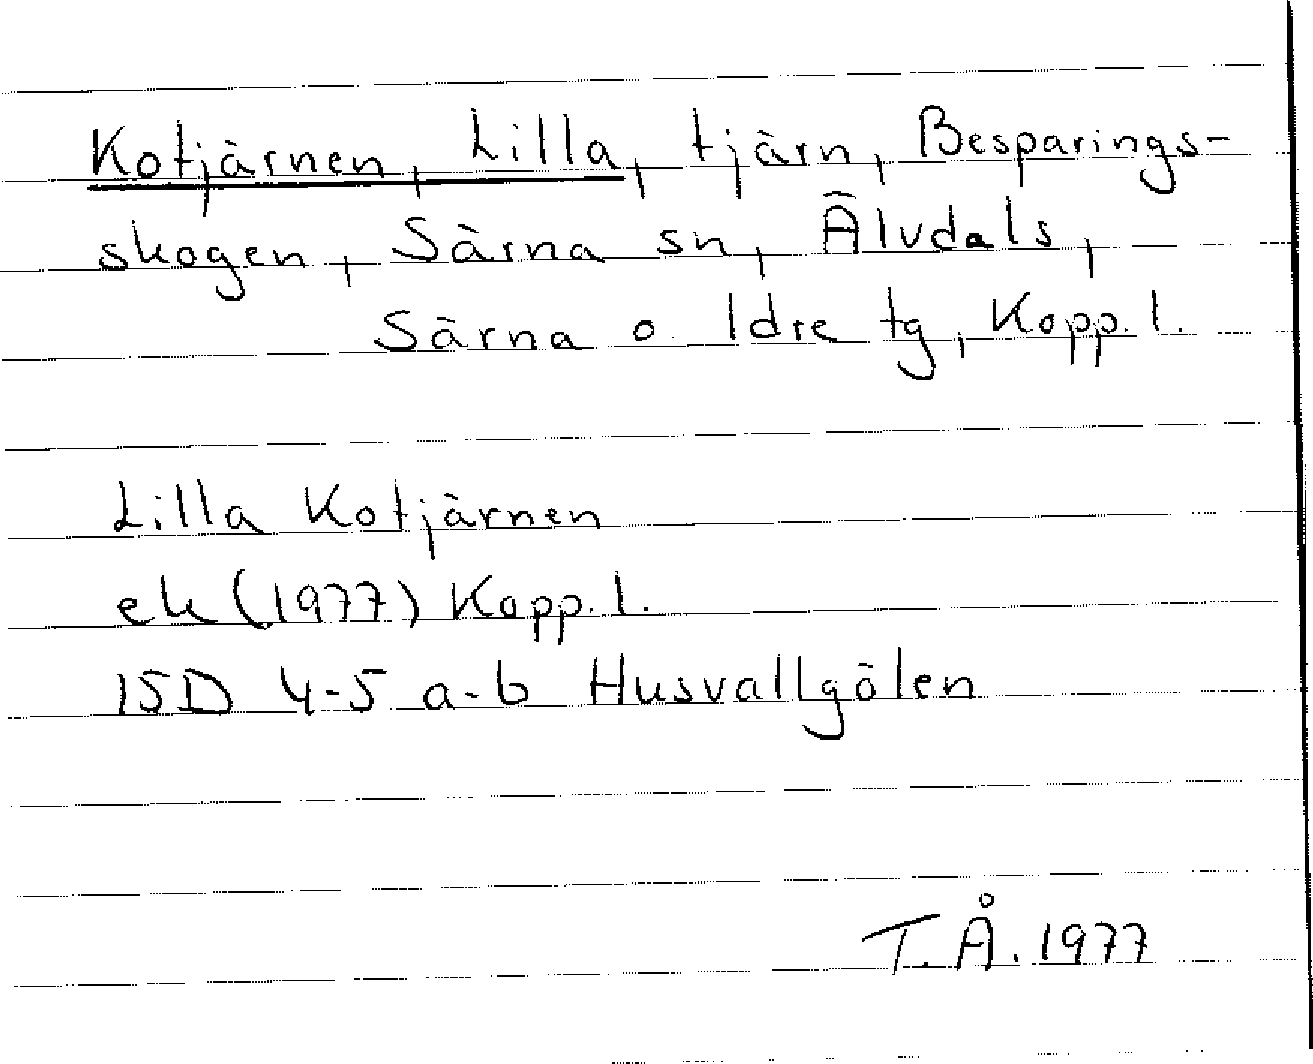 Kotjärnen, Lilla, tjärn, Besparings-
skogen, Särna sn, Älvdals,
Särna o. Idre tg, Kopp. l.
Lilla Kotjärnen
ek (1977) Kopp. l.
15D 4-5 a-b Husvallgölen
T.Å. 1977